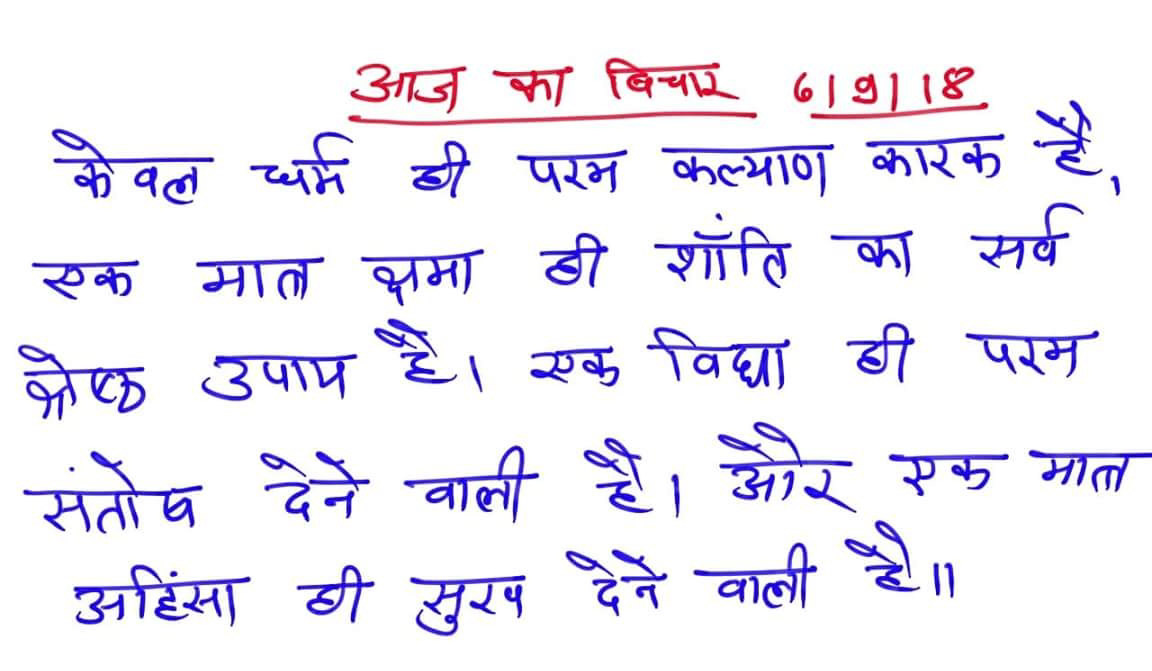 आज का बिचार 6|9|18
केवल धर्म ही परम कल्याण कारक है,
एक मात्र क्षमा ही शाँति का सर्व
श्रेष्ठ उपाय है। एक विद्या ही परम
संतोष देने वाली है। और एक मात्र
अहिंसा ही सुख देने वाली है॥